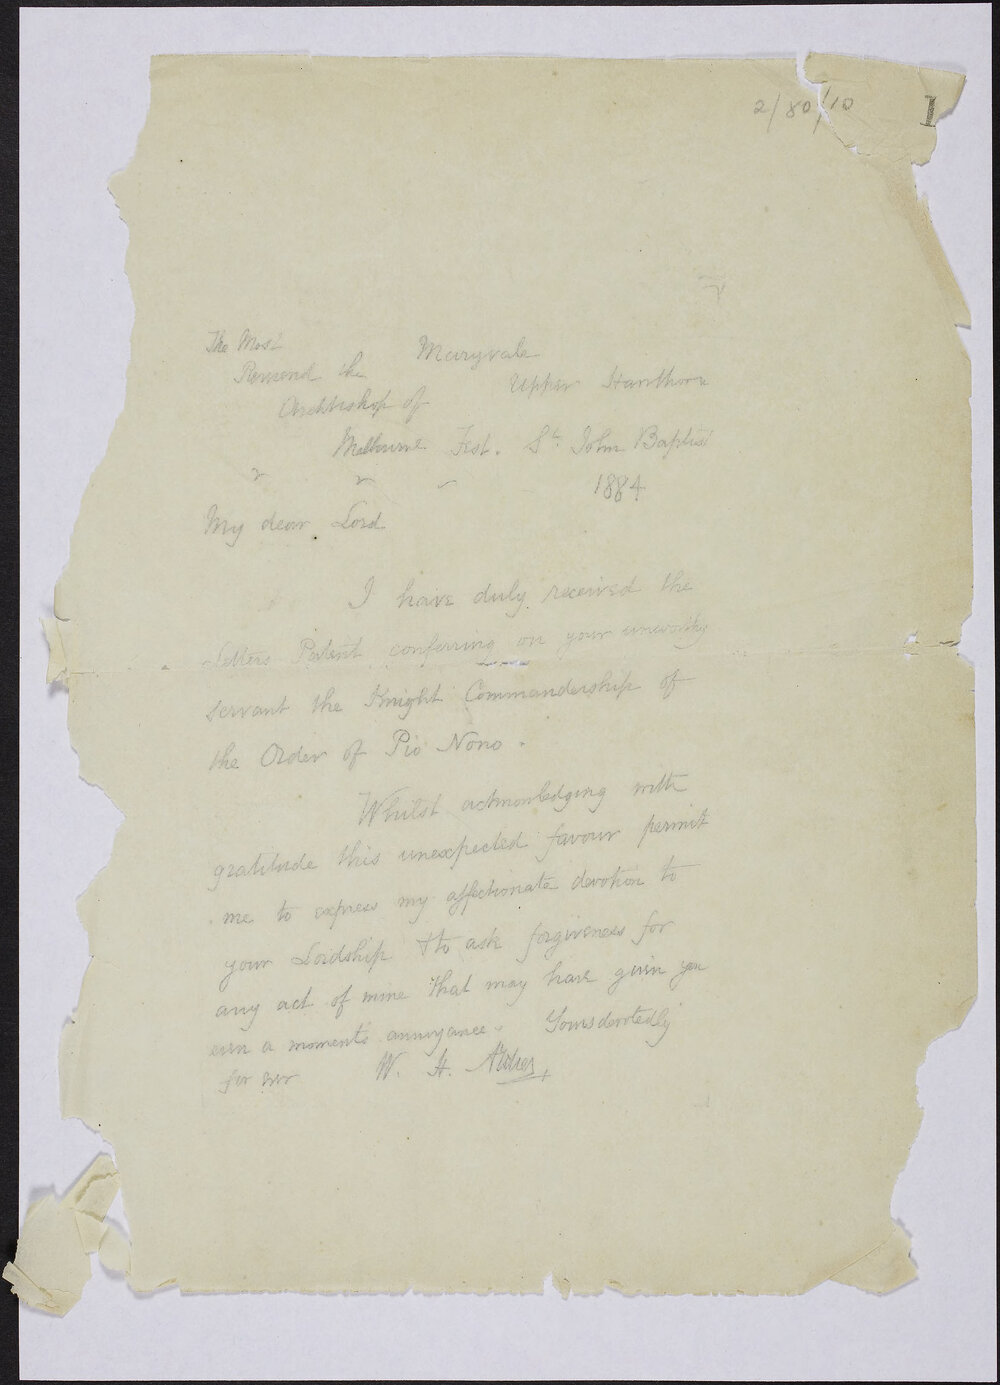 2/80/10
The Most
Reverend the
Archbishop of
Melbourne
Maryvale
Upper Hawthorn
Fest. St. John Baptist
1884
My dear Lord
I have duly received the
Letters Patent conferring on your unworthy
servant the Knight Commandership of
the Order of Pio Nono.
Whilst acknowledging with
gratitude this unexpected favour permit
me to express my affectionate devotion to
your Lordship & to ask forgiveness for
any act of mine that may have given you
even a moment's annoyance. Yours devotedly
for ever W. H. Archer